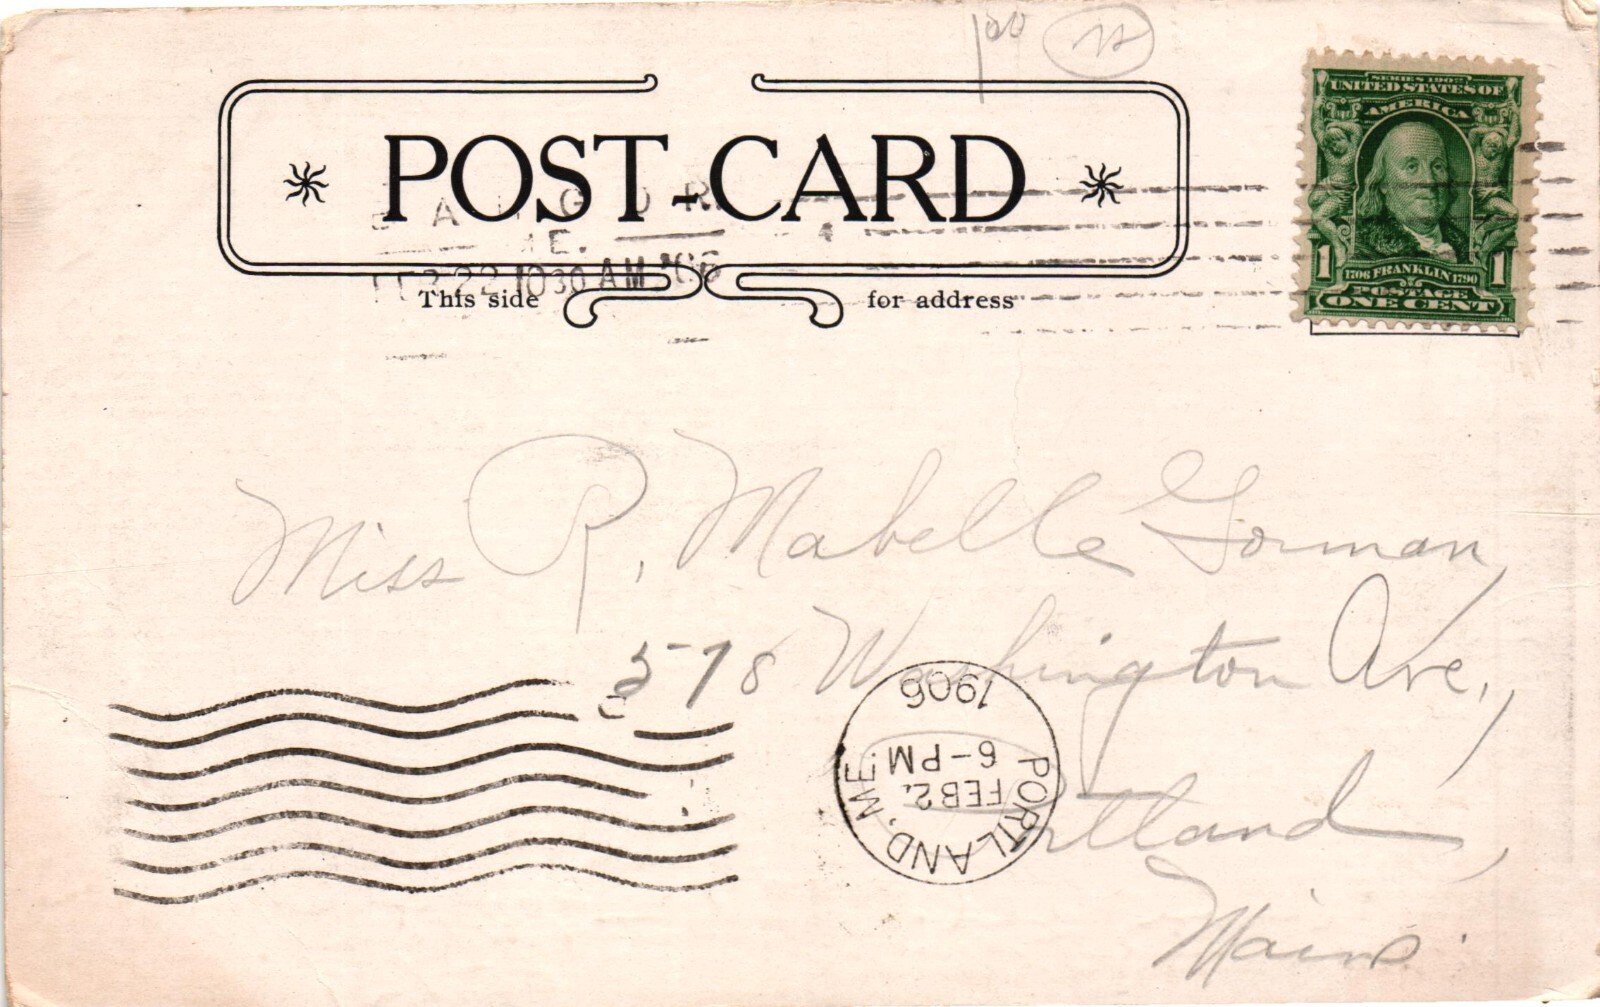 POST-CARD
BANGOR
ME.
FEB 22 1030 AM '06
This side
for address
SERIES 1902
UNITED STATES OF
AMERICA
1 1706 FRANKLIN 1790 1
POSTAGE
ONE CENT
Miss R. Mabelle Gorman,
578 Washington Ave.,
Portland,
Maine.
PORTLAND, ME.
FEB 2,
6-PM
1906